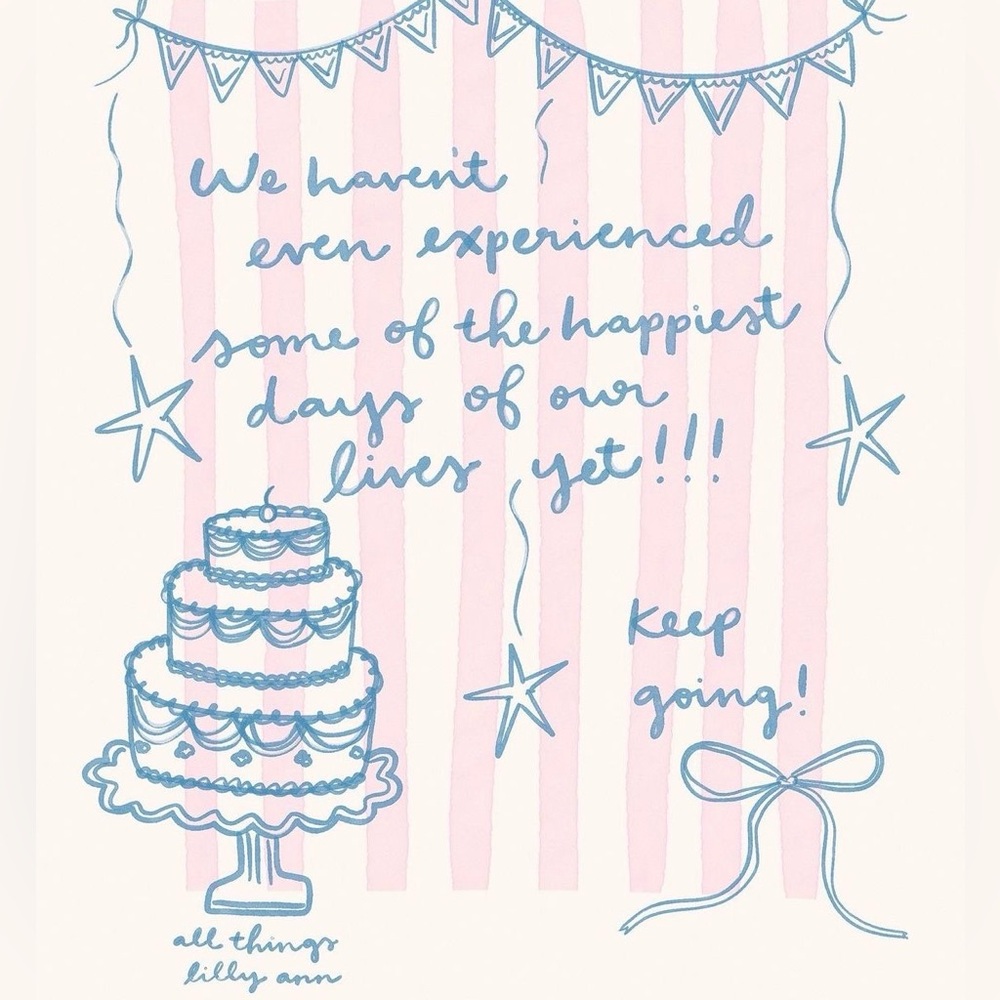 We haven't
even experienced
some of the happiest
days of our
lives yet!!!
Keep
going!
all things
lilly ann